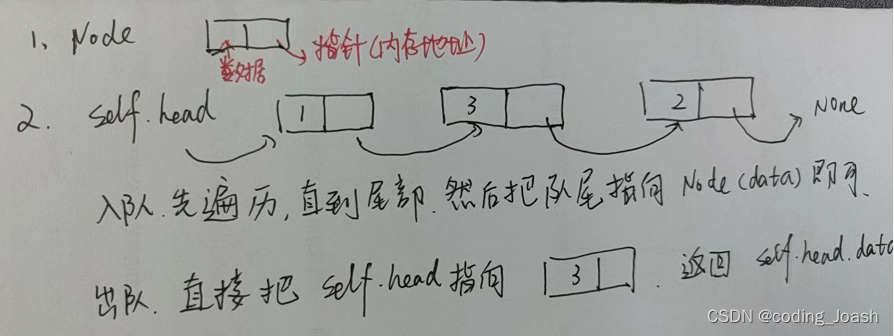 1、Node 指针(内存地址)
数据
2. self.head 1 3 2 None
入队.先遍历,直到尾部.然后把队尾指向 Node(data)即可.
出队.直接把 self.head 指向 3 .返回 self.head.data
CSDN @coding_Joash